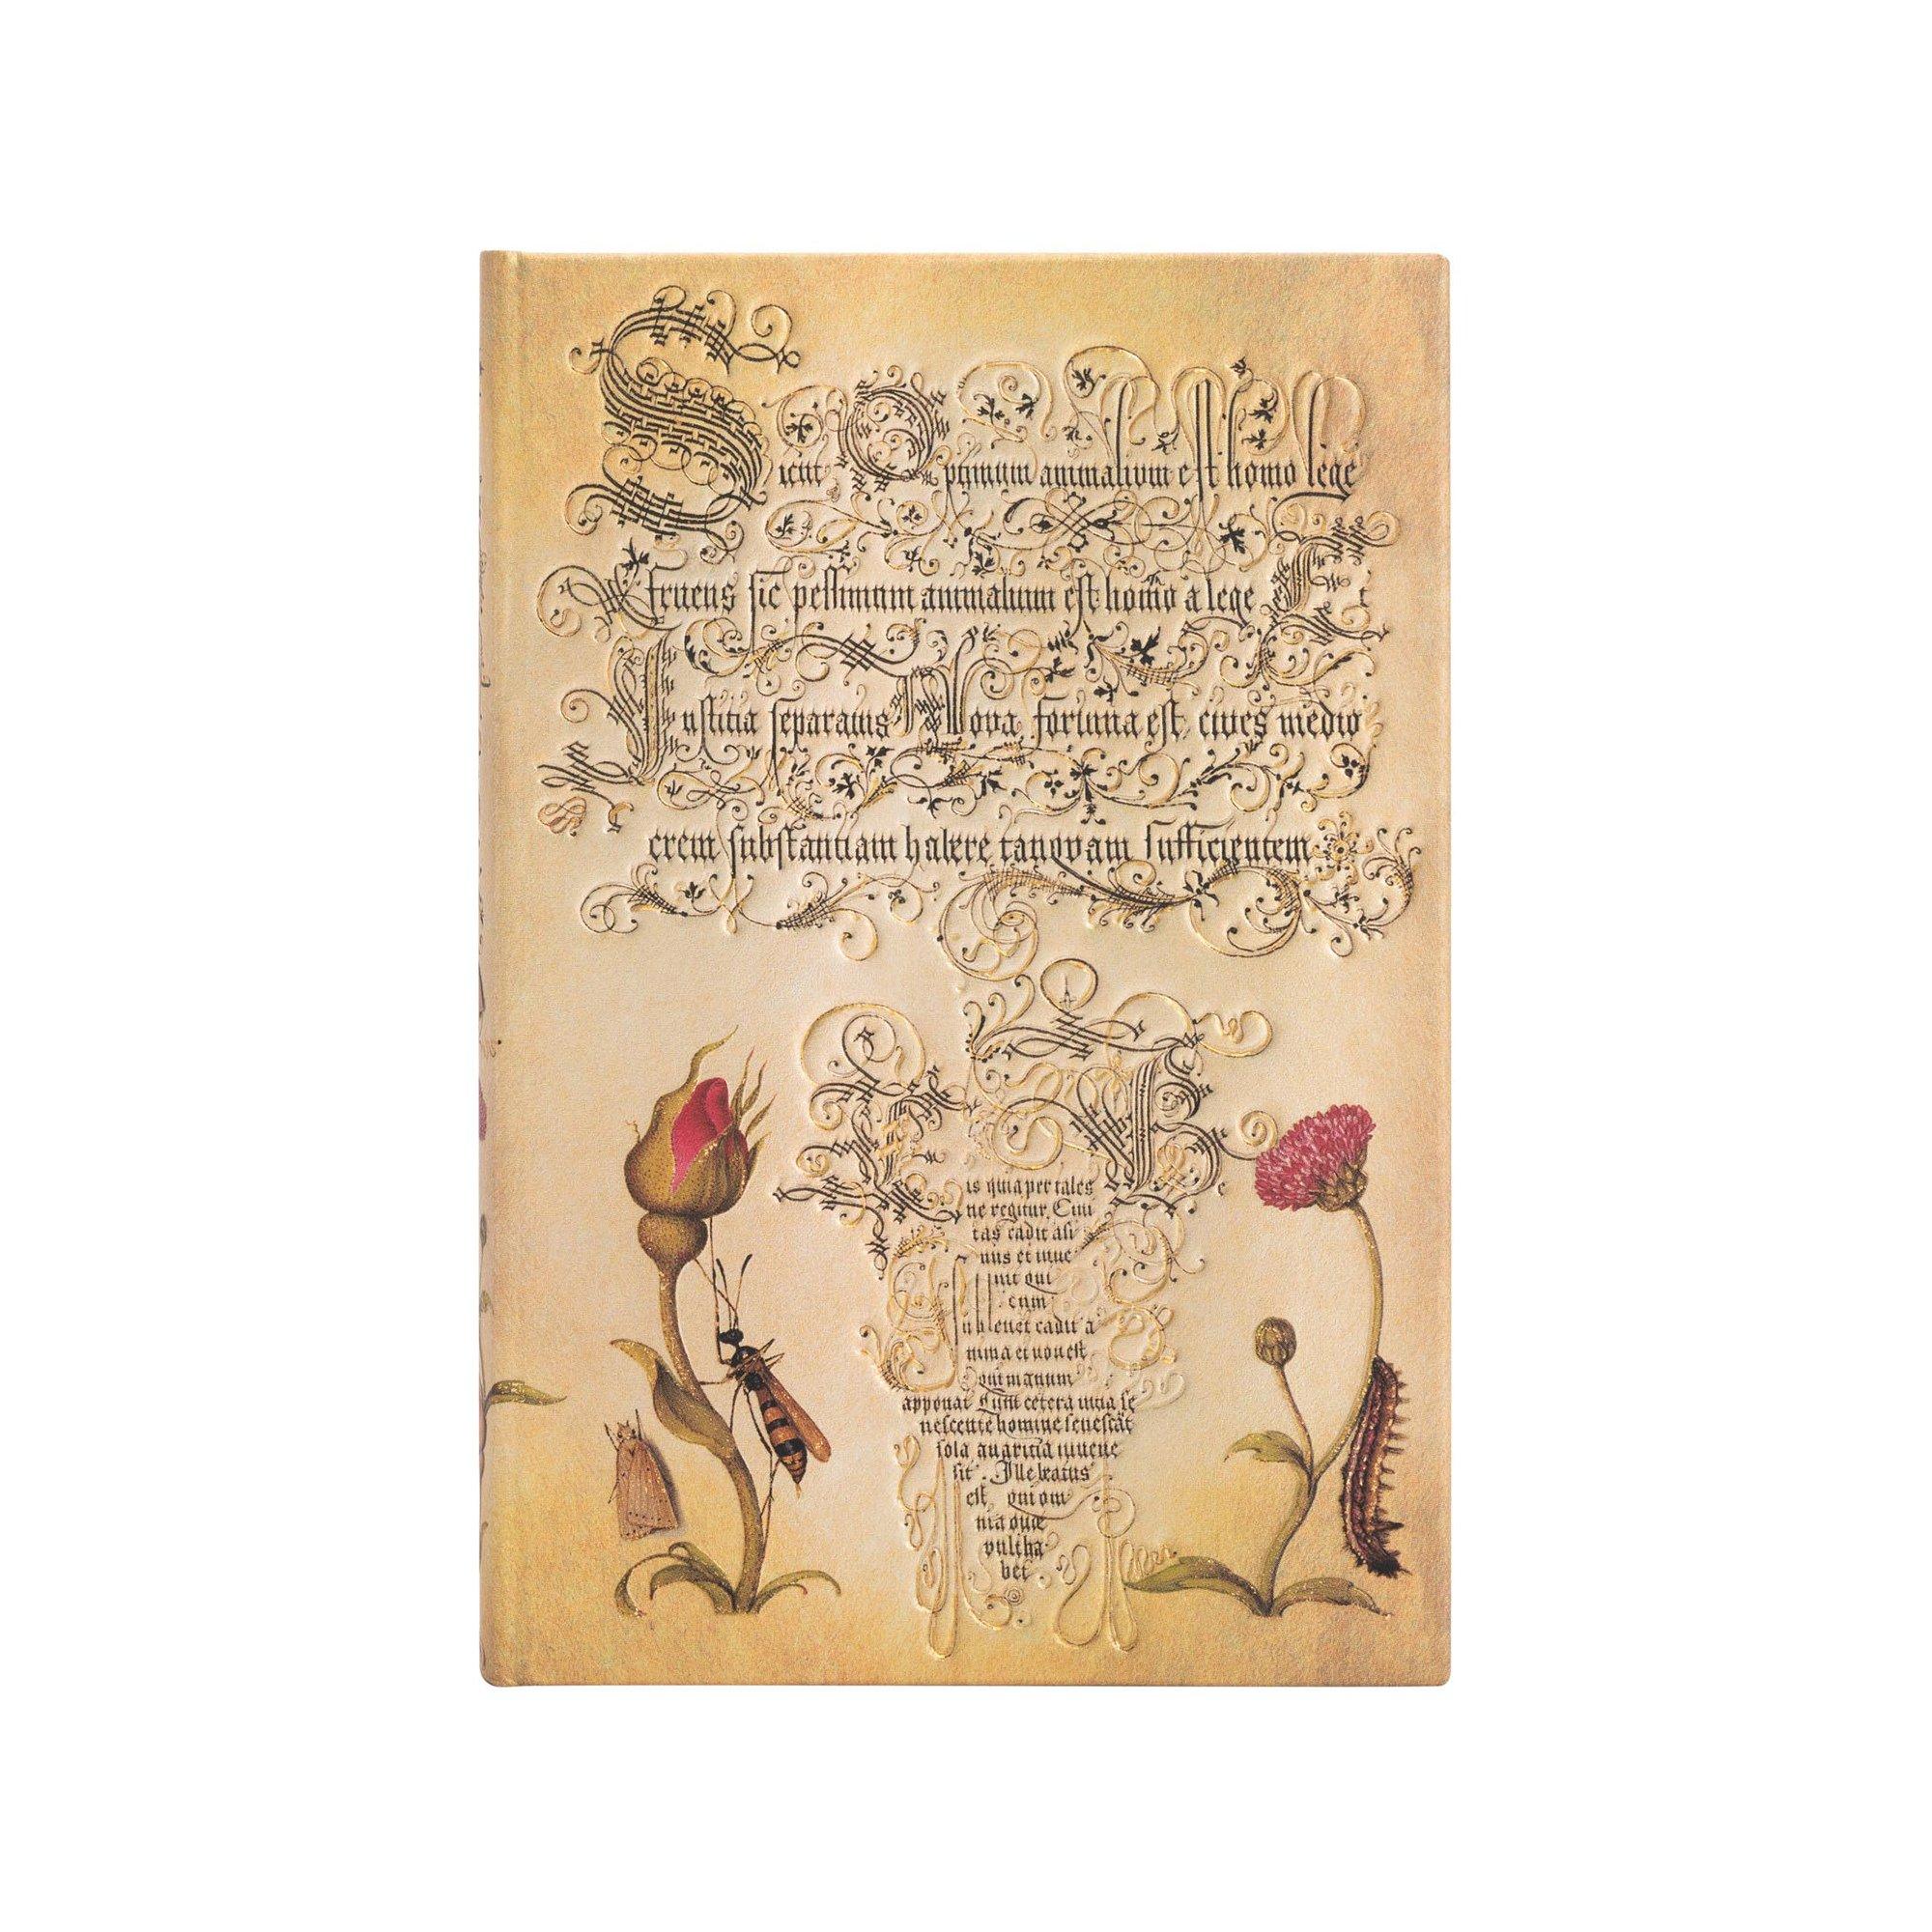 Sicut Optimum animalium est homo lege
fruens sic pessimum animalium est homo a lege Et
Iustitia separatus Nova fortuna est, cives medio
crem substantiam habere tanquam sufficientem
is quia per tales Be
ne regitur. Ciui
tas cadit asi
nus et inue
nit qui
eum
subleuet cadit a
nima et non est
qui manum
apponat Cum cetera uitia se
nescente homine senescāt
sola auaritia iuuene
sit. Ille beatus
est, qui om
nia quæ
vult ha
bet.